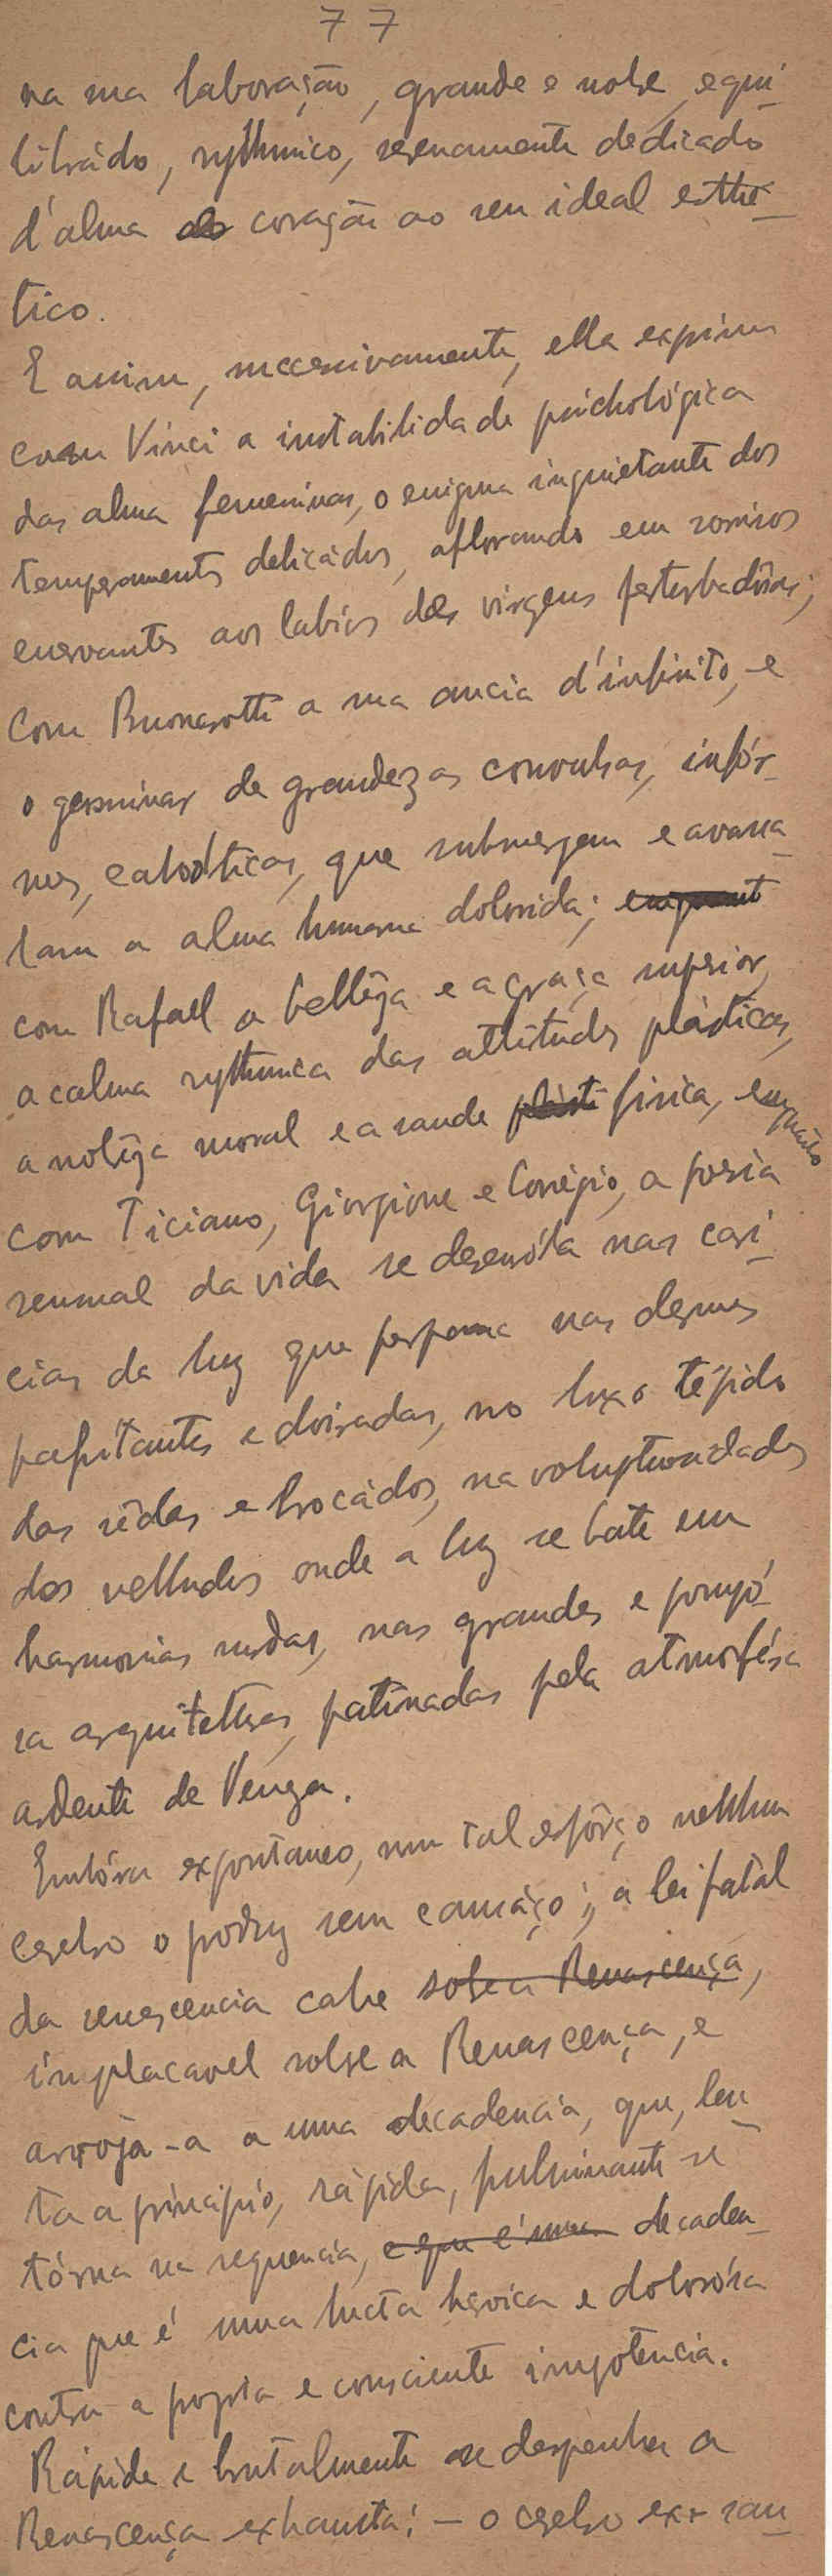 77
na sua laboração, grande e nobre, equi-
librádo, rythmico, serenamente dedicado
d'alma e coração ao seu ideal esthe-
tico.
E assim, successivamente, ella exprime
com Vinci a instabilidade psichológica
das alma femeninas, o enigma inquietante dos
temperamentos delicádos, aflorando em sorrisos
enervantes aos labios das virgens perturbadôras;
Com Buonarotti a sua ancia d'infinito, e
o germinar de grandezas convulsas, infór-
mes, cahoticas, que submergem e avassa-
lam a alma humana dolorida;
com Rafael a bellêza e a graça superior,
a calma rythmica das attitudes plásticas,
a nobrêza moral e a saude fisica, emquanto
com Ticiano, Giorgione e Corrégio, a poesia
sensual da vida se desenróla nas cari-
cias da luz que perpassa nas dermes
palpitantes e doiradas, no luxo tépido
das sêdas e brocádos, na voluptuosidades
dos velludos onde a luz se bate em
harmonias surdas, nas grandes e pompó-
sa arquiteturas, patinadas pela atmosféra
ardente de Veneza.
Embóra expontaneo, um tal esfôrço nenhum
cerebro o produz sem cansáço; a lei fatal
da senescencia cahe sobre a Renascença,
implacavel sobre a Renascença, e
arrója-a a uma decadencia, que, len-
ta a principio, rápida, fulminante se
tórna na sequencia, e que é uma decaden-
cia que é uma lucta heroica e dolorósa
contra a propria e consciente impotencia.
Rápida e brutalmente se despenha a
Renascença exhausta: – o cerebro ex-san-